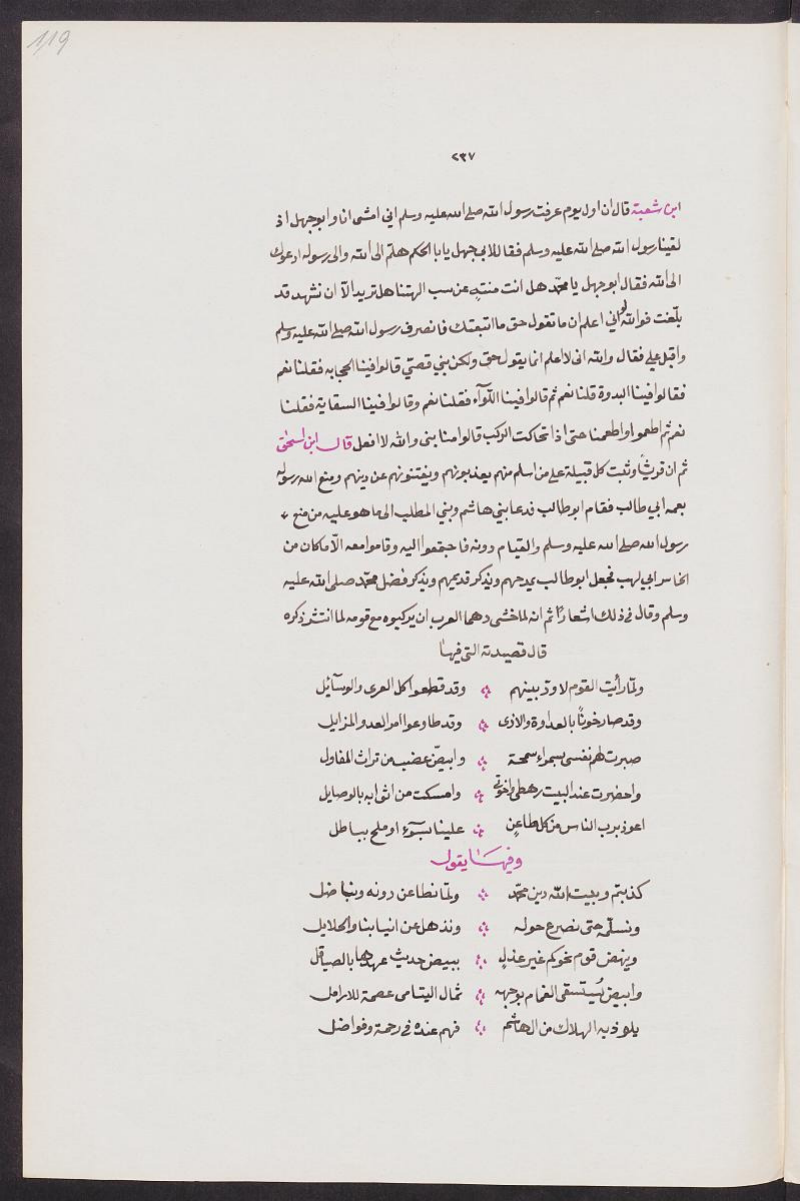 119
٢٣٧
ابن شعبة قال ان اول يوم عرفت رسول الله صلى الله عليه وسلم اني امشى انا وابوجهل اذ
لقينا رسول الله صلى الله عليه وسلم فقال لابي جهل يابا الحكم هلم الى الله والى رسوله ادعوك
الى الله فقال ابو جهل يا محمد هل انت منتهٍ عن سب الهتنا هل تريد الا ان نشهد قد
بلغت فوالله لو اني اعلم ان ما تقول حق ما اتبعتك فانصرف رسول الله صلى الله عليه وسلم
واقبل علي فقال والله انى لاعلم انما يقول حق ولكن بني قصي قالوا فينا الحجابه فقلنا نعم
فقالوا فينا الندوة قلنا نعم ثم قالوا فينا اللوآء فقلنا نعم وقالوا فينا السقاية فقلنا
نعم ثم اطعموا واطعمنا حتى اذا تحاكت الركب قالوا منا بنى والله لا افعل قال ابن اسحق
ثم ان قريشًا وثبت كل قبيلة على من اسلم منهم يعذبونهم ويفتنونهم عن دينهم ومنع الله رسوله
بعمه ابي طالب فقام ابو طالب فدعا بني هاشم وبني المطلب الى ما هو عليه من منع
رسول الله صلى الله عليه وسلم والقيام دونه فاجتمعوا اليه وقاموا معه الا ما كان من
الخاسر ابي لهب فجعل ابو طالب يمدحهم ويذكر قديمهم ويذكر فضل محمد صلى الله عليه
وسلم وقال في ذلك اشعارًا ثم انه لما خشى دهما العرب ان يركبوه مع قومه لما انتشر ذكره
قال قصيدته التى فيها
ولما رأيت القوم لا ود بينهم وقد قطعوا كل العرى والوسآئل
وقد صارخونا بالعداوة والاذى وقد طاوعوا امر العدو المزايل
صبرت لهم نفسى بسمراء سمحة وابيض عضب من تراث المقاول
واحضرت عند البيت رهطى واخوتي وامسكت من اثوابه بالوصايل
اعوذ برب الناس من كل طاعن علينا بسوء او ملح بباطل
وفيها يقول
كذبتم وبيت الله دين محمد ولما نطاعن دونه ونناضل
ونسلمه حتى نصرع حوله ونذهل عن ابنائنا والحلايل
وينهض قوم نحوكم غير عذل ببيض حديث عهدها بالصياقل
وابيض يُستسقى الغمام بوجهه ثمال اليتامى عصمة للارامل
يلوذ به الهلاك من ال هاشم فهم عنده في رحمة وفواضل